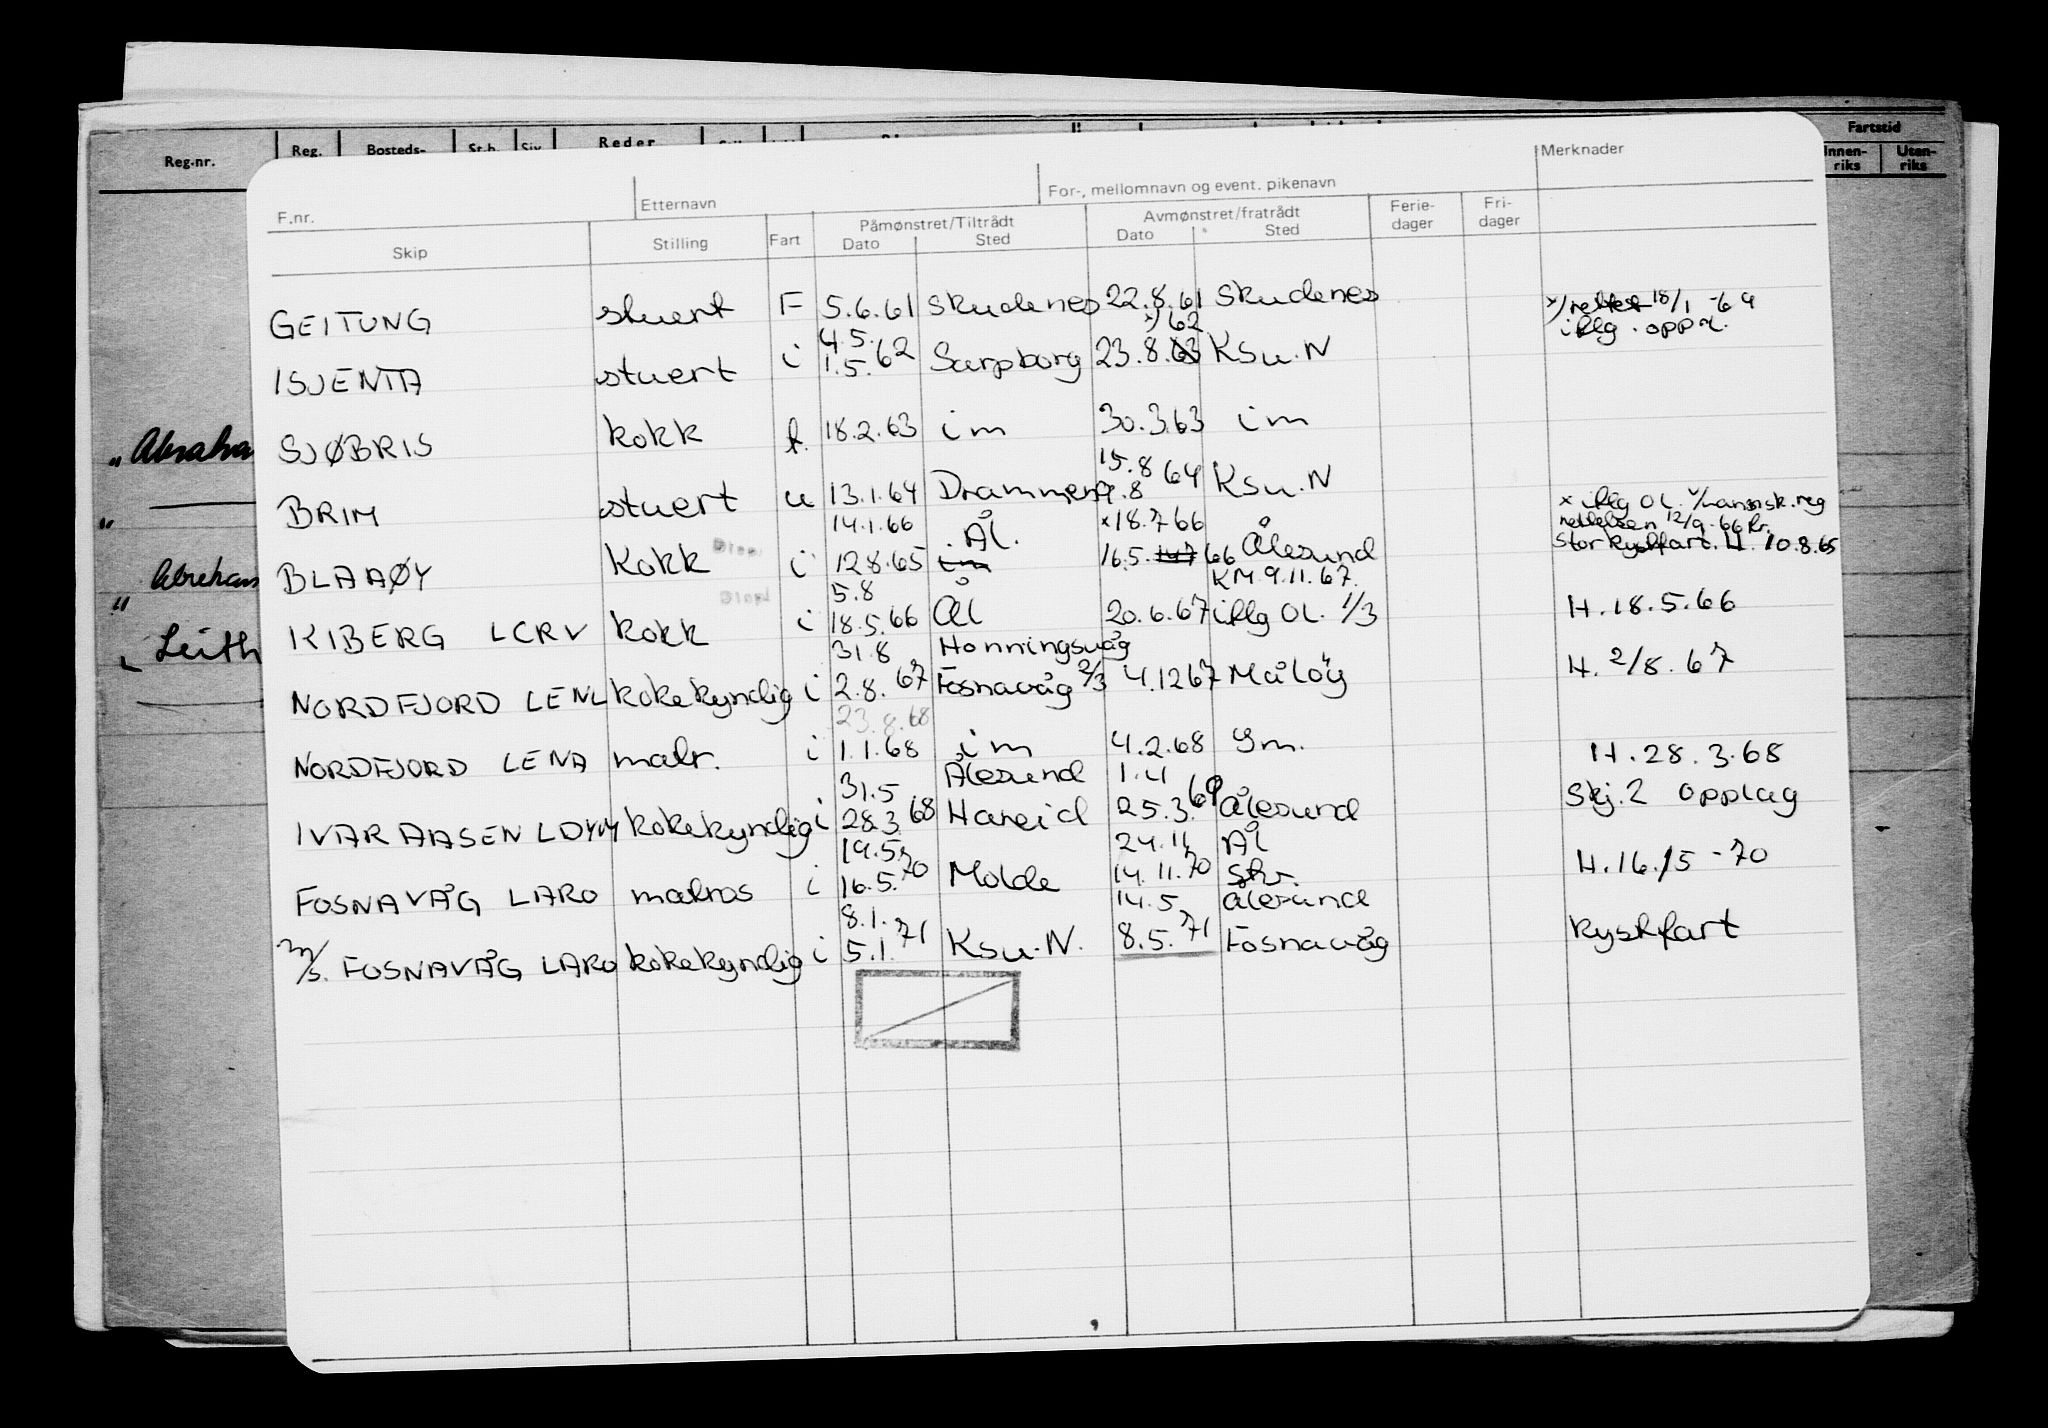 Reg.nr. Reg. Bosteds- Reder Fartstid
Innen-riks Utan-riks
F.nr. Etternavn For-, mellomnavn og event. pikenavn Merknader
Skip Stilling Fart Påmønstret/Tiltrådt Avmønstret/fratrådt Ferie-dager Fri-dager
Dato Sted Dato Sted
GEITUNG stuert F 5.6.61 Skudenes 22.8.61 Skudenes x/ rettet 18/1 -64
4.5. x/62 iflg. oppl.
ISJENTA stuert i 1.5.62 Sarpborg 23.8.63 Ksu.N
SJØBRIS kokk f. 18.2.63 im 30.3.63 im
15.8
BRIM stuert u 13.1.64 Drammen 9.8 64 Ksu.N
x iflg OL. v/mannsk.reg
14.1.66 Ål. x18.7 66 rettelsen 12/9-66 kr.
BLAAØY Kokk i 12.8.65 im 16.5. 147 66 Ålesund Stor kystfart. H. 10.8.65
5.8 Å KM.9.11.67.
KIBERG LCRV kokk i 18.5.66 Ål 20.6.67 iflg OL. 1/3 H.18.5.66
31.8 Honningsvåg
NORDFJORD LENL kokekyndig i 2.8.67 Fosnavåg 2/3 4.12 67 Måløy H. 2/8.67
23.8.68
NORDFJORD LENA matr. i 1.1.68 im 4.2.68 Im. H.28.3.68
31.5 Ålesund 1.4
IVAR AASEN LDYM kokekyndig i 28.3.68 Hareid 25.3.69 Ålesund Skj.2 opplag
19.5. 24.11 Ål
FOSNAVÅG LARO matros i 16.5.70 Molde 14.11.70 Skr. H.16./5 -70
8.1. 14.5 Ålesund
m/s. FOSNAVÅG LARO kokekyndig i 5.1.71 Ksu.N. 8.5.71 Fosnavåg kystfart
„ Abraha
„
„ Abraham
Leith